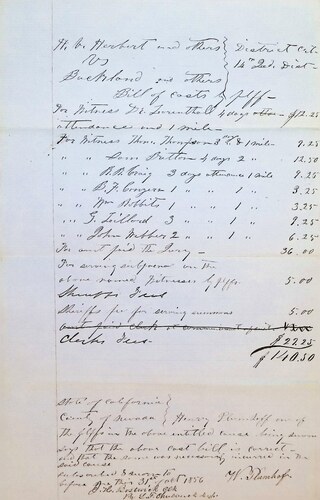 H. C. Herbert and others } District Crt.
vs } 14th Jud. Dist
Buckland and others
Bill of costs by Plff
For Witness De Leventhal 4 days atten $12.25
attendance and 1 mile
For Witness Thos. Thompson 3 " & 1 mile 9.25
" " Sam Dutton 4 days 2 " 12.50
" " R.R. Craig 3 days attendance 1 mile 9.25
" " D.F. 1 " 1 " 3.25
" " Wm 1 " 1 " 3.25
" " G. Dillard 3 " 1 " 9.25
" " John Webber 2 " 1 " 6.25
For amt paid the Jury 36.00
For serving subpoena on the
above named Witnesses by Plff 5.00
Sheriffs Fees
Sheriffs fee for serving summons 5.00
amt paid clerk
Clerks Fees $22.25
$140.50
State of California
County of Nevada } Henry Plumhoff one of
the plffs in the above entitled cause being sworn
says that the above cost bill is correct
and that the same was necessarily incurred in the
said cause
Subscribed & sworn to
before me this 31st Oct 1856 H. Plumhoff
J. H. Bostwick Clk